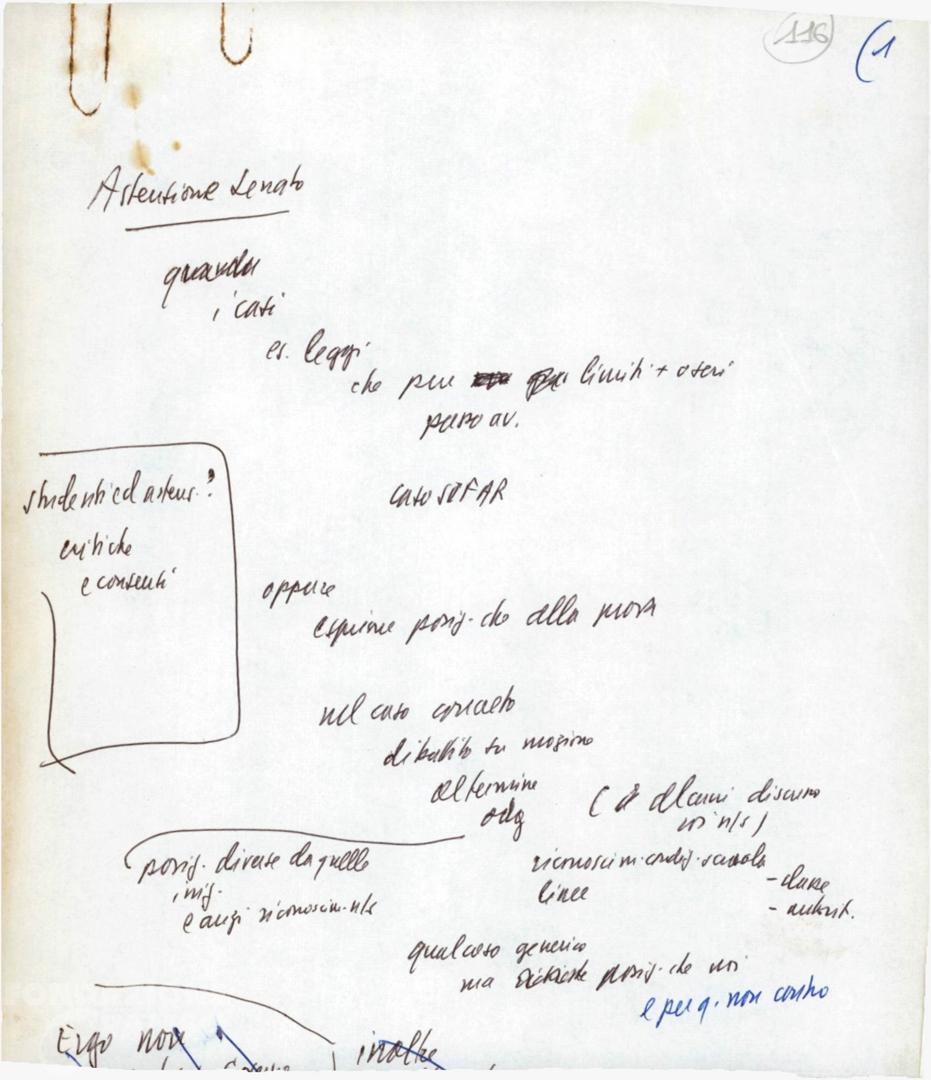 116
(1
Astensione Senato
quando
i casi
es. leggi
che pur limiti + oneri
passo av.
caso SIFAR
studenti ed astens.?
critiche
e consensi
oppure
esprime posiz. che della
nel caso concreto
dibattito su mozione
al termine
odg
( di alcuni discorso
noi n/s )
posiz. diverse da quelle
iniz.
e anzi riconoscim. n/s
riconoscim. condiz. scuola
linee
- classe
- autorit.
qualcosa generico
ma richieste posiz. che noi
e per q. non contro
Ergo non
inoltre